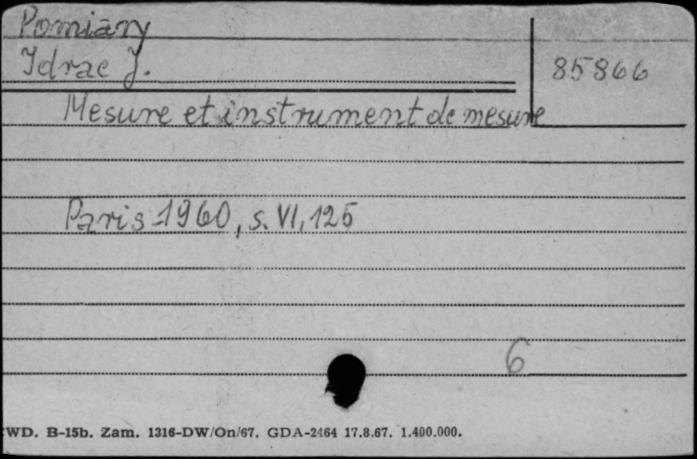 Pomiary
Idrac J.
85866
Mesure et instrument de mesure
Paris 1960, s. VI, 125
6
WD. B-15b. Zam. 1316-DW/On/67. GDA-2464 17.8.67. 1.400.000.